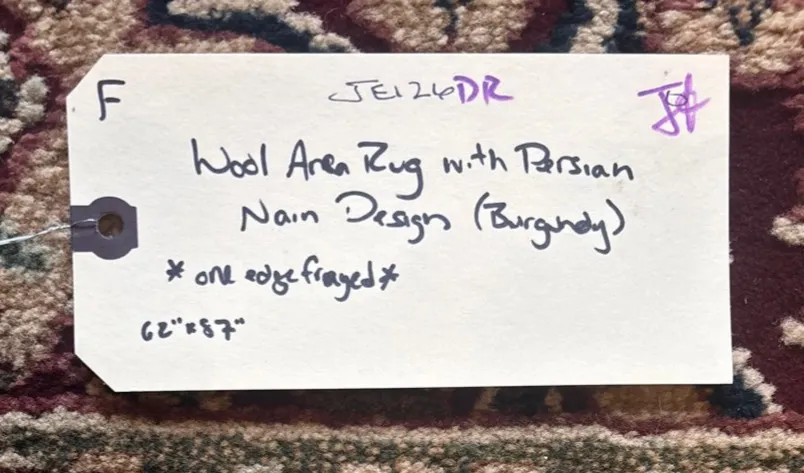 F
JE126DR
Wool Area Rug with Persian
Nain Design (Burgundy)
* one edge frayed *
62" x 87"